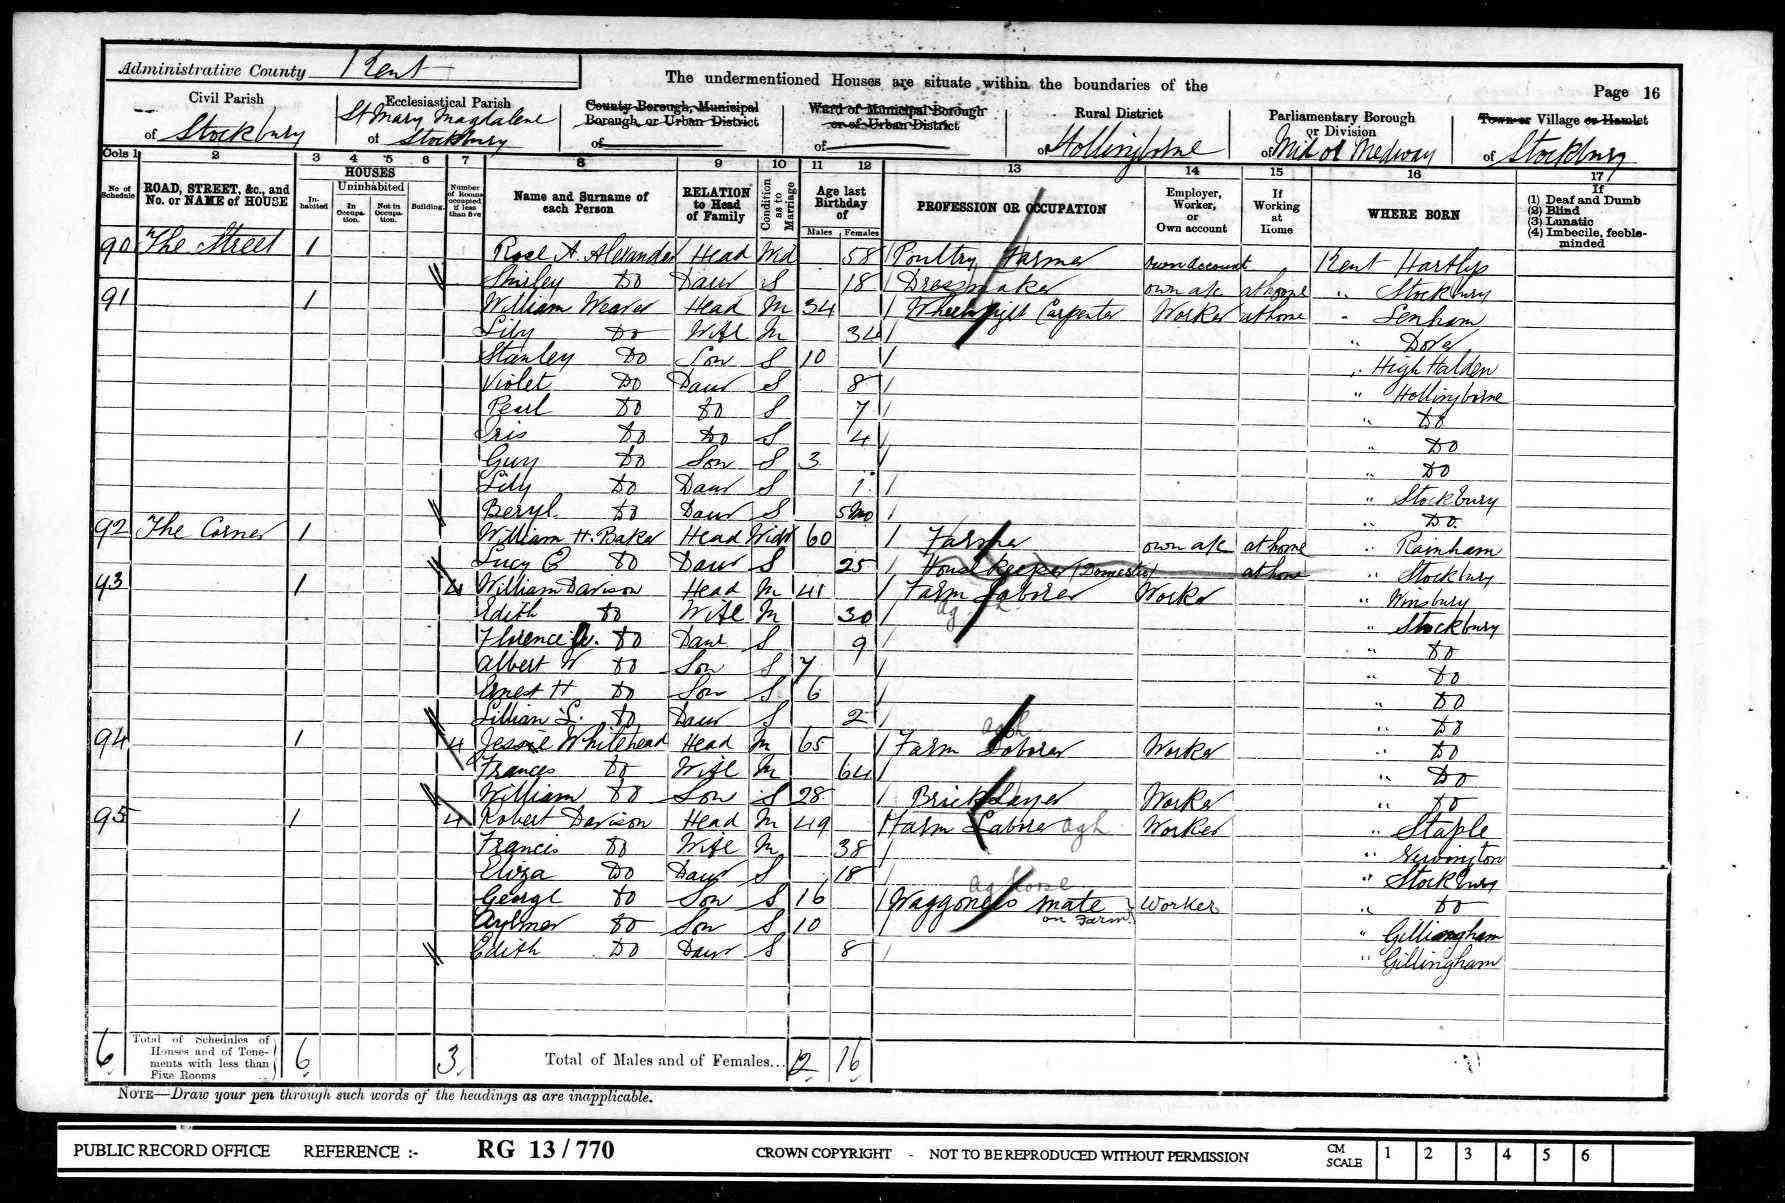 Administrative County Kent
The undermentioned Houses are situate within the boundaries of the
Page 16
Civil Parish
of Stockbury
Ecclesiastical Parish
St Mary Magdalene
of Stockbury
County Borough, Municipal
Borough, or Urban District
of
Ward of Municipal Borough
or of Urban District
of
Rural District
of Hollingborne
Parliamentary Borough
or Division
of Mid or Medway
Town or Village or Hamlet
of Stockbury
Cols 1 2 3 4 5 6 7 8 9 10 11 12 13 14 15 16 17
No of Schedule
ROAD, STREET, &c., and No. or NAME of HOUSE
HOUSES
Inhabited
Uninhabited
In Occupation.
Not in Occupation.
Building.
Number of Rooms occupied if less than five
Name and Surname of each Person
RELATION to Head of Family
Condition as to Marriage
Age last Birthday of
Males Females
PROFESSION OR OCCUPATION
Employer, Worker, or Own account
If Working at Home
WHERE BORN
If
(1) Deaf and Dumb
(2) Blind
(3) Lunatic
(4) Imbecile, feeble-minded
90 The Street 1 A. Alexander Head Wid 58 Poultry Farmer own account Kent Hartlip
Shirley Do Daur S 18 Dressmaker own a/c at home " Stockbury
91 1 William Weaver Head M 34 Wheelwright Carpenter Worker at home " Lenham
Lily Do Wife M 34 " Dover
Stanley Do Son S 10 " High Halden
Violet Do Daur S 8 " Hollingborne
Pearl Do Do S 7 " Do
Iris Do Do S 4 " Do
Guy Do Son S 3 " Do
Lily Do Daur S 1 " Stockbury
Beryl Do Daur S 5mo " Do
92 The Corner 1 William H. Baker Head Widr 60 Farmer own a/c at home " Rainham
Lucy E Do Daur S 25 Housekeeper (Domestic) at home " Stockbury
93 1 4 William Davison Head M 41 Farm Laborer Worker " Winsbury
Edith Do Wife M 30 " Stockbury
Florence Do Daur S 9 " Do
Albert W Do Son S 7 " Do
Ernest H Do Son S 6 " Do
Lillian L. Do Daur S 2 " Do
94 1 4 Jessie Whitehead Head M 65 Farm Laborer Worker " Do
Frances Do Wife M 64 " Do
William Do Son S 28 Brick Layer Worker " Do
95 1 4 Robert Davison Head M 49 Farm Laborer Agh Worker " Staple
Francis Do Wife M 38 " Newington
Eliza Do Daur S 18 " Stockbury
George Do Son S 16 Waggoners mate on Farm Worker " Do
Aylmer Do Son S 10 " Gillingham
Edith Do Daur S 8 " Gillingham
6 Total of Schedules of Houses and of Tenements with less than Five Rooms 6 3 Total of Males and of Females... 12 16
NOTE—Draw your pen through such words of the headings as are inapplicable.
PUBLIC RECORD OFFICE REFERENCE :- RG 13 / 770 CROWN COPYRIGHT - NOT TO BE REPRODUCED WITHOUT PERMISSION CM SCALE 1 2 3 4 5 6